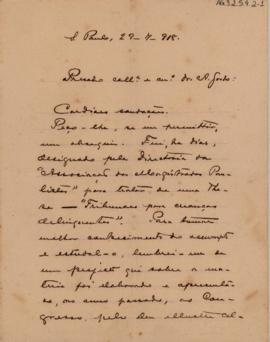 S. Paulo, 29-4-918.
Presado coll.ª e am.º dr. A. Gordo:
Cordiaes saudações.
Peço-lhe, se m'o permittir,
um obsequio. Fui, ha dias,
designado pela Directoria da
"Associação dos Magistrados Pau-
listas" para tratar de uma The-
se — "Tribunaes para creanças
delinquentes". Para tomar
melhor conhecimento do assumpto
e estudal-o, lembrei-me
de um projecto que sobre a ma-
teria foi elaborado e apresenta-
do, no anno passado, ao Con-
gresso, pelo seu illustre col-